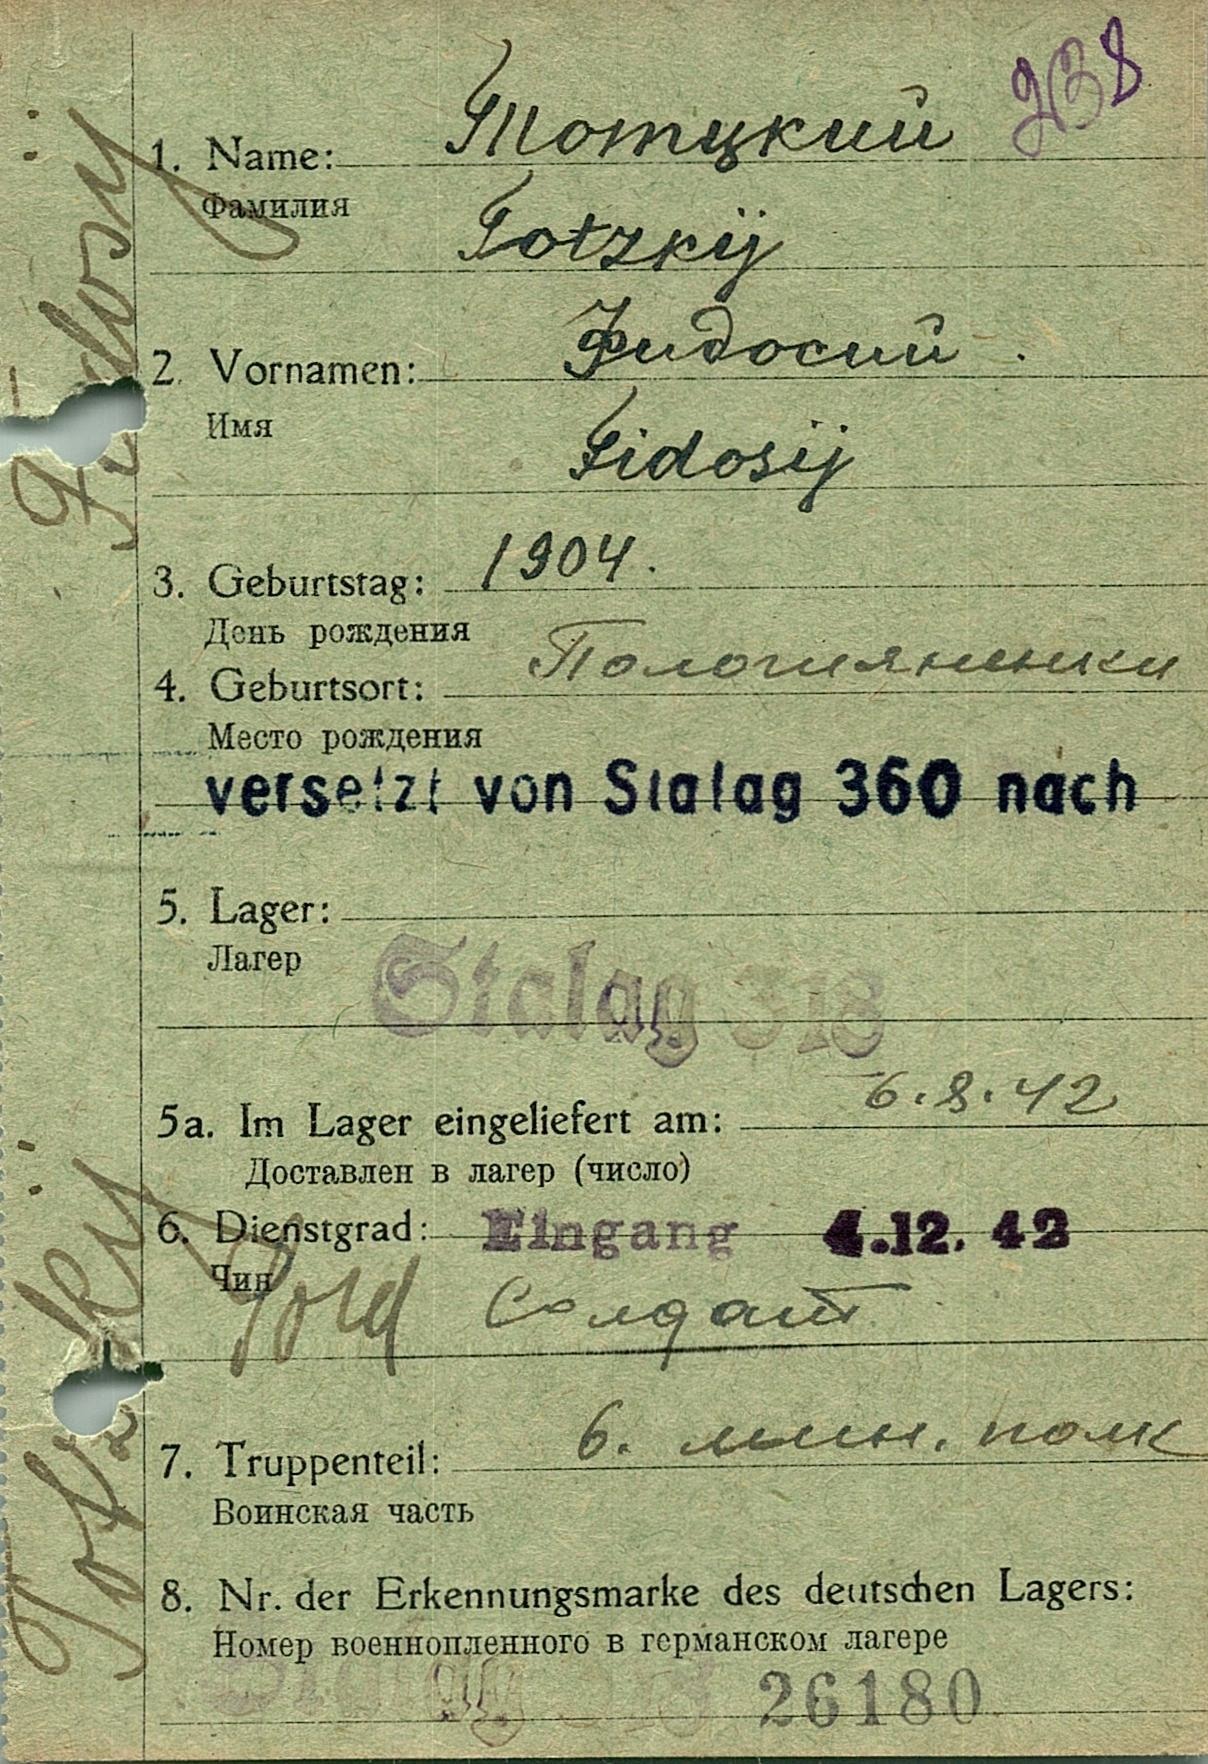 938
1. Name: Тотцкий
Фамилия
Totzkij
2. Vornamen: Фидосий
Имя
Fidosij
3. Geburtstag: 1904.
День рождения
4. Geburtsort:
Место рождения
versetzt von Stalag 360 nach
5. Lager:
Лагер
Stalag 318
5a. Im Lager eingeliefert am: 6.8.42
Доставлен в лагер (число)
6. Dienstgrad: Eingang 4.12.42
Чин Sold Солдат
7. Truppenteil: 6. мин. полк
Воинская часть
8. Nr. der Erkennungsmarke des deutschen Lagers:
Номер военнопленного в германском лагере
Stalag 318 26180
Totzkij Fidosij